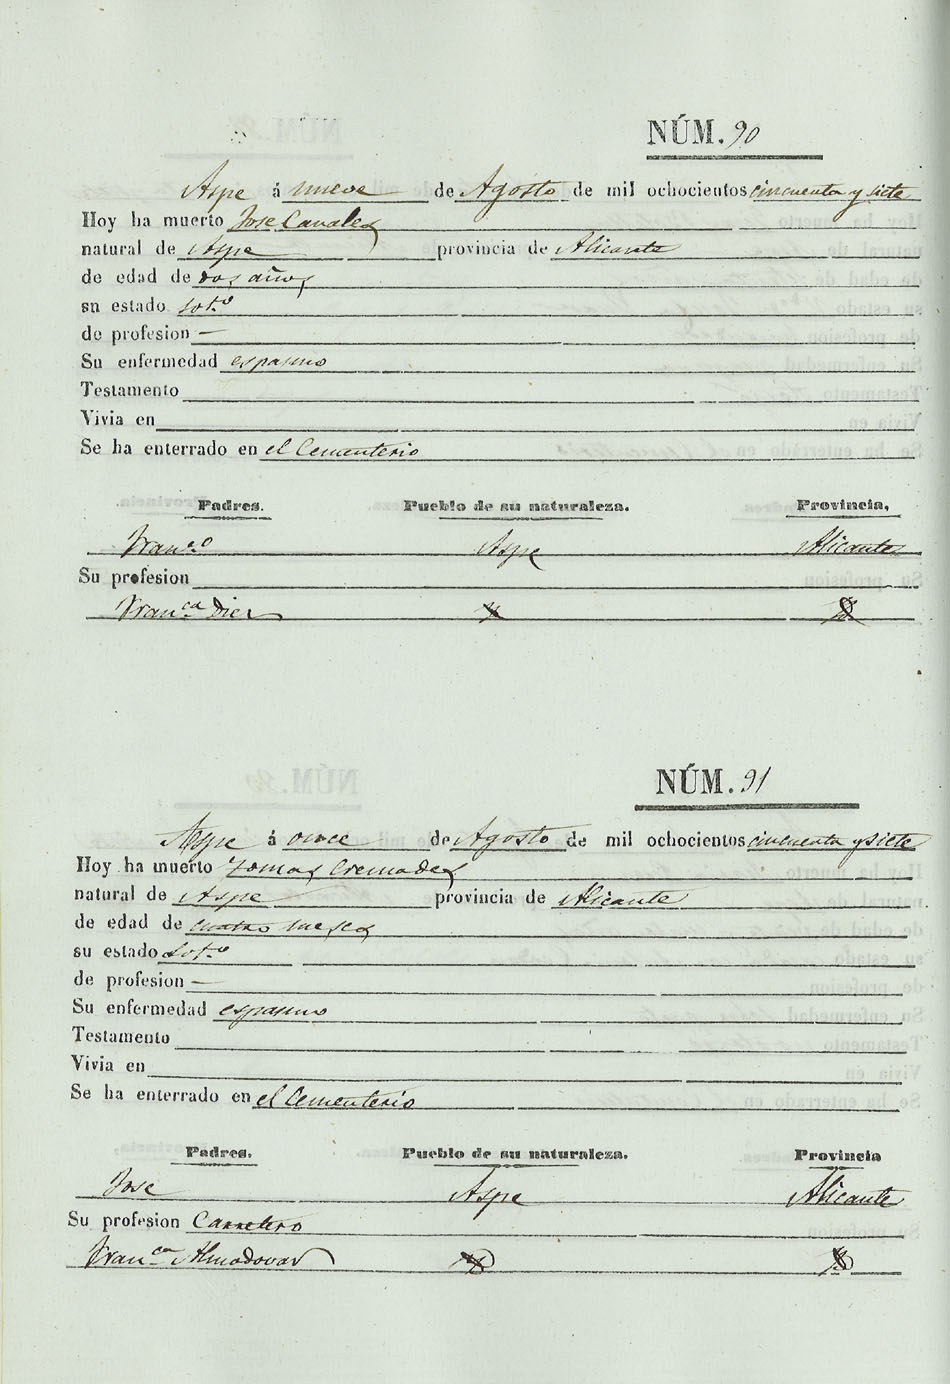 NÚM. 90
Aspe á nueve de Agosto de mil ochocientos cincuenta y siete
Hoy ha muerto Jose Canales
natural de Aspe provincia de Alicante
de edad de dos años
su estado Solt.º
de profesion —
Su enfermedad espasmo
Testamento
Vivia en
Se ha enterrado en el Cementerio
Padres. Pueblo de su naturaleza. Provincia.
Fran.co Aspe Alicante
Su profesion
Fran.ca Diez
NÚM. 91
Aspe á once de Agosto de mil ochocientos cincuenta y siete
Hoy ha muerto Tomas Cremades
natural de Aspe provincia de Alicante
de edad de cuatro meses
su estado Solt.º
de profesion —
Su enfermedad espasmo
Testamento
Vivia en
Se ha enterrado en el Cementerio
Padres. Pueblo de su naturaleza. Provincia
Jose Aspe Alicante
Su profesion Carretero
Fran.ca Almodovar